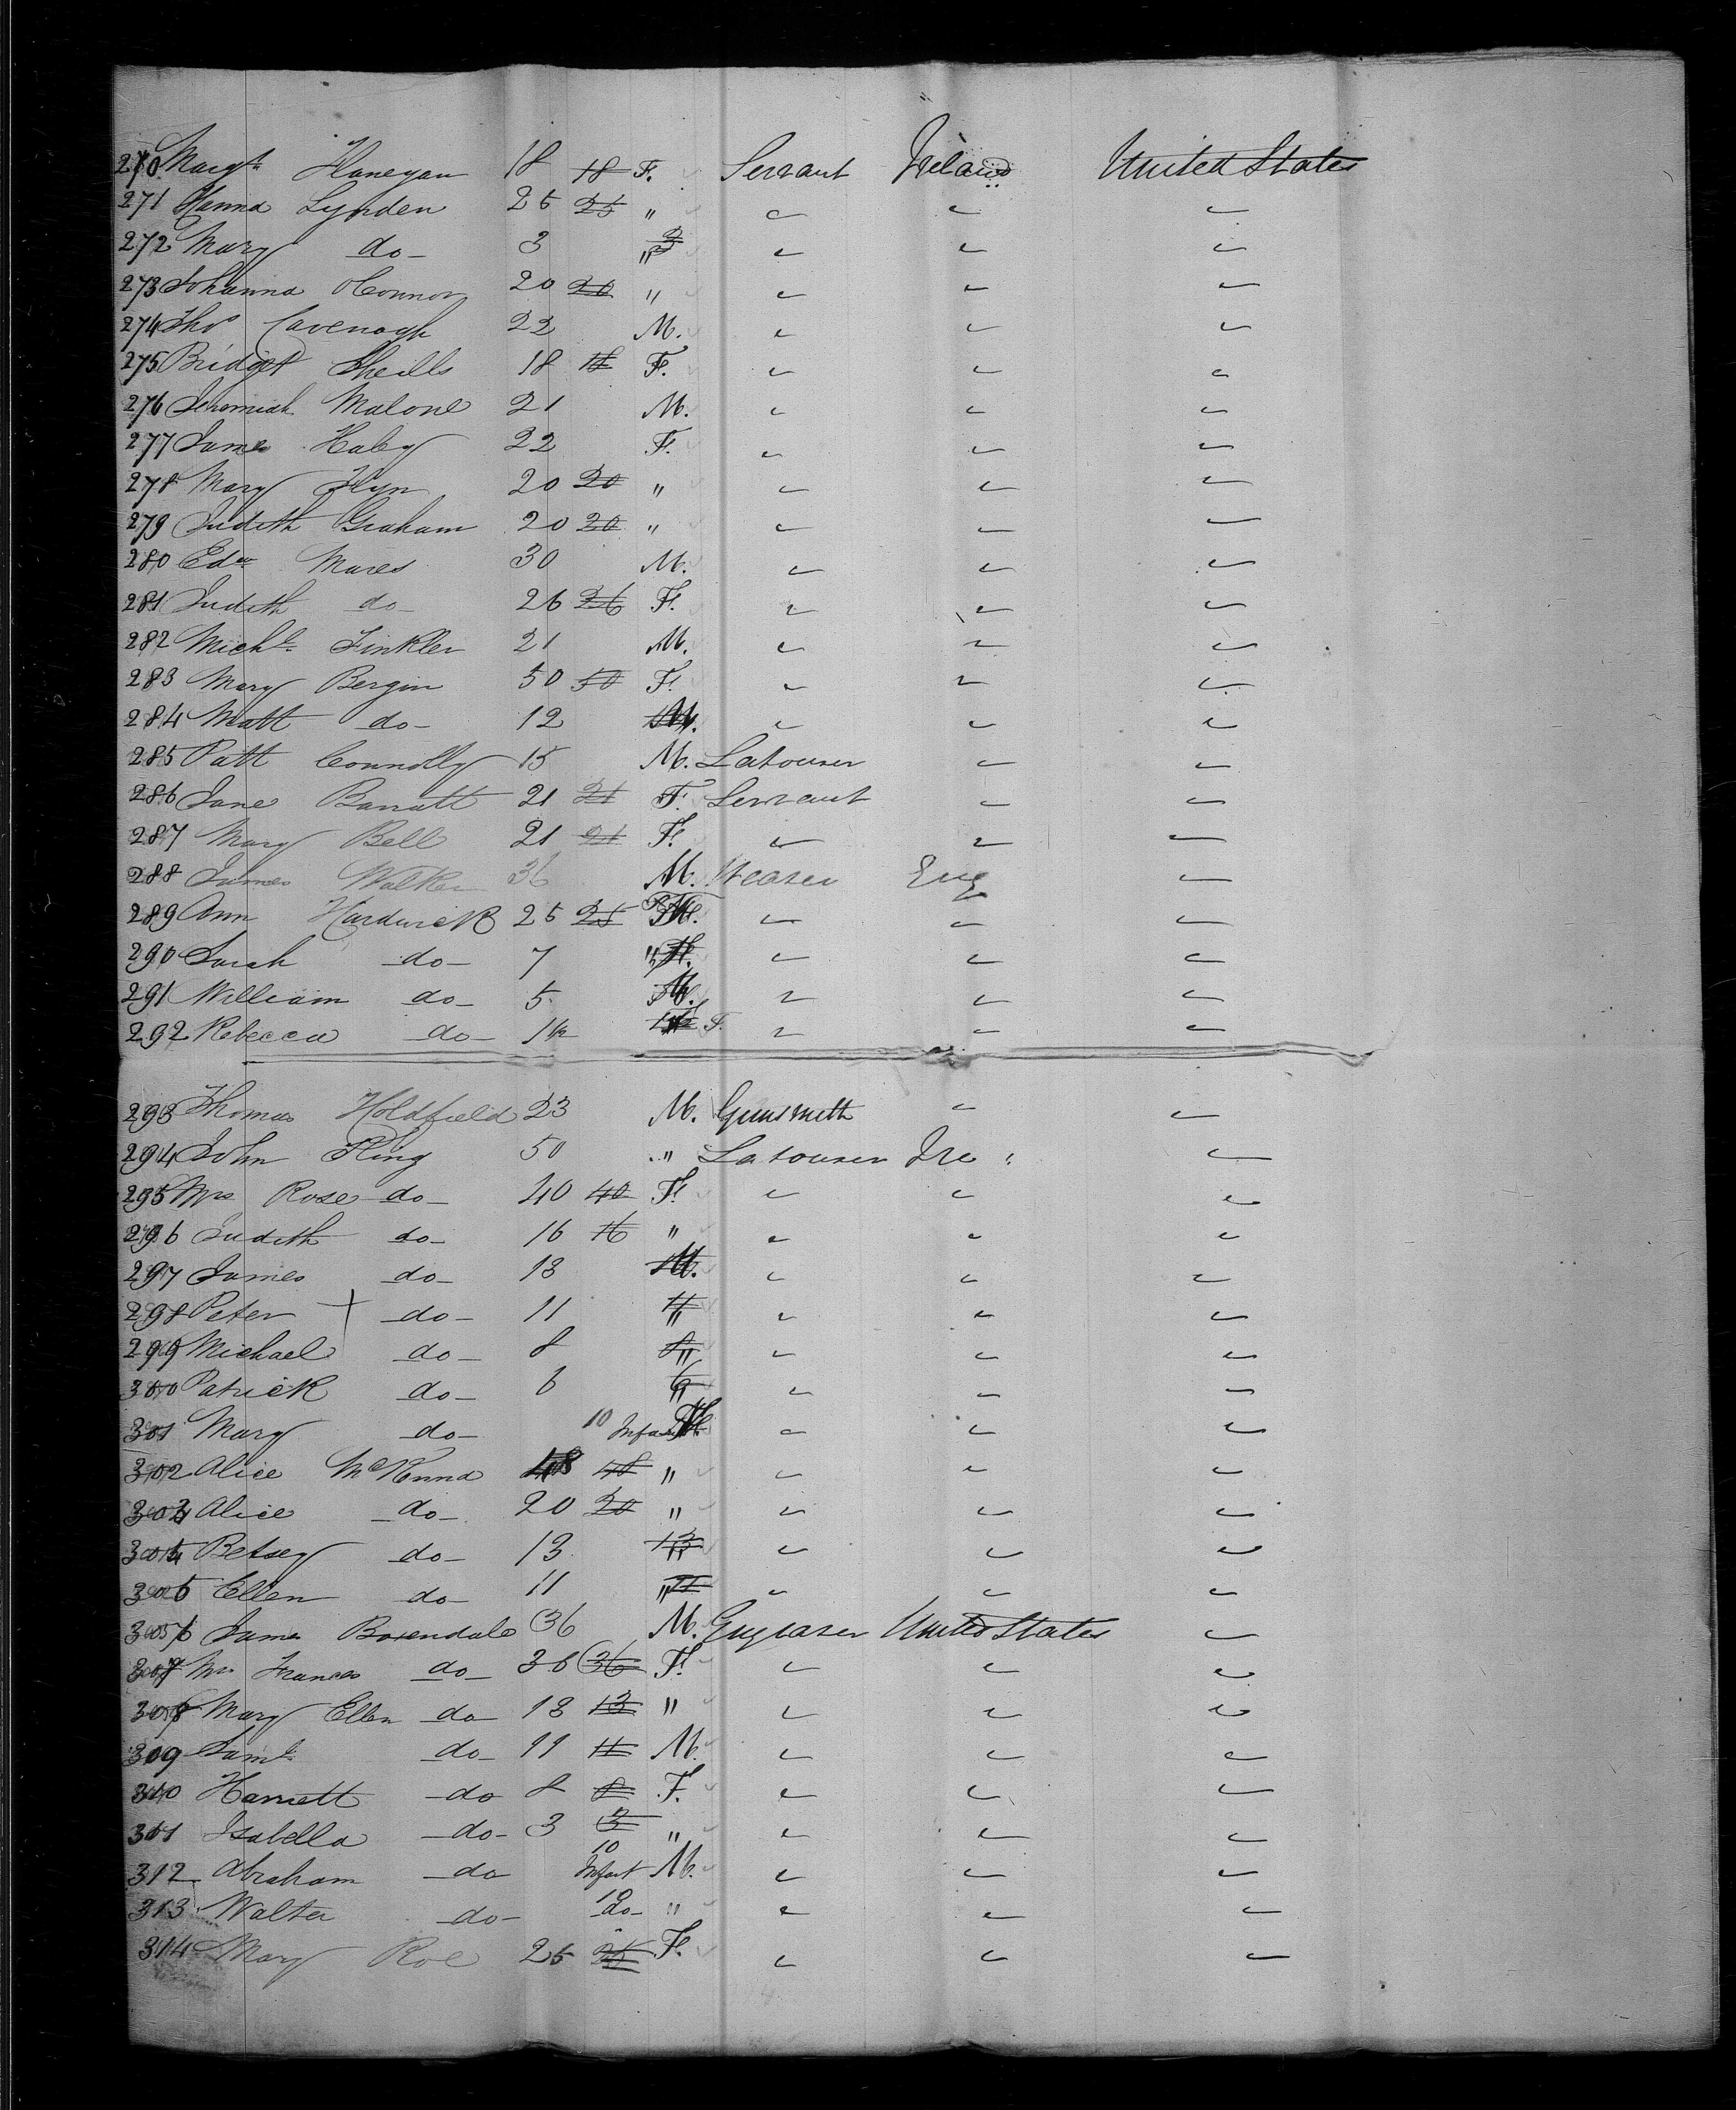 270 Margt Flanegan 18 18 F. Servant Ireland United States
271 Hanna Lynden 25 25 " " " "
272 Mary do 3 3 " " " "
273 Johanna OConnor 20 20 " " " "
274 Thos Cavenagh 22 M. " " "
275 Bridget Sheills 18 18 F. " " "
276 Jeremiah Malone 21 M. " " "
277 James Haley 22 F. " " "
278 Mary Flyn 20 20 " " " "
279 Judith Graham 20 20 " " " "
280 Edw Mares 30 M. " " "
281 Judith do 26 26 F. " " "
282 Michl Finkler 21 M. " " "
283 Mary Bergin 50 50 F. " " "
284 Matt do 12 M. " " "
285 Patt Connolly 15 M. Labourer " "
286 Jane Barratt 21 21 F. Servant " "
287 Mary Bell 21 21 F. " " "
288 James Walker 36 M. Weaver Eng "
289 Ann Hardwick 25 25 F. " " "
290 Sarah do 7 " " " "
291 William do 5 M. " " "
292 Rebecca do F. " " "
293 Thomas Holdfield 23 M. Gunsmith " "
294 John Kling 50 " Labourer Ire "
295 Mrs Rose do 40 40 F. " " "
296 Judith do 16 16 " " " "
297 James do 13 M. " " "
298 Peter do 11 11 " " " "
299 Michael do 8 8 " " " "
300 Patrick do 6 6 " " " "
301 Mary do 10 Infant F. " " "
302 Alice McKenna 48 48 " " " "
303 Alice do 20 20 " " " "
304 Betsey do 13 13 " " " "
305 Ellen do 11 11 " " " "
306 James Boxendale 36 M. Engraver United States "
307 Mrs Frances do 36 36 F. " " "
308 Mary Ellen do 13 13 " " " "
309 Saml do 11 11 M. " " "
310 Harriett do 8 8 F. " " "
311 Isabella do 3 3 " " " "
312 Abraham do 10 Infant M. " " "
313 Walter do 10 do " " " "
314 Mary Roe 25 25 F. " " "